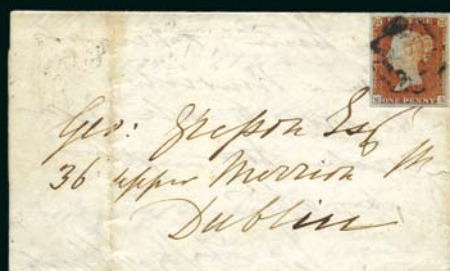 ONE PENNY
Geo: Esq
36 upper Merrion St
Dublin